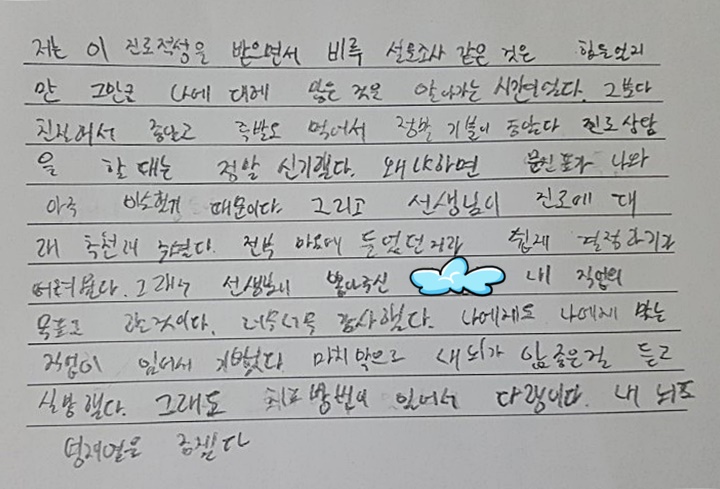 저는 이 진로적성을 받으면서 비록 설문조사 같은 것은 힘들었지
만 그만큼 나에 대해 많은 것을 알아가는 시간이었다. 그보다
친절해서 좋았고 족발도 먹어서 정말 기분이 좋았다 진로 상담
을 할 때는 정말 신기했다. 왜냐하면 나와
아주 비슷했기 때문이다. 그리고 선생님이 진로에 대
해 추천해 주셨다. 전부 마음에 들었던거라 쉽게 결정하기가
어려웠다. 그래서 선생님이 뽑아주신 내 직업의
목표로 감사했다. 나에게도 나에게 맞는
직업이 있어서 기뻤다 마지막으로 내 뇌가 안 좋은걸 듣고
실망했다. 그래도 치료 방법이 있어서 다행이다. 내 뇌도
좋겠다